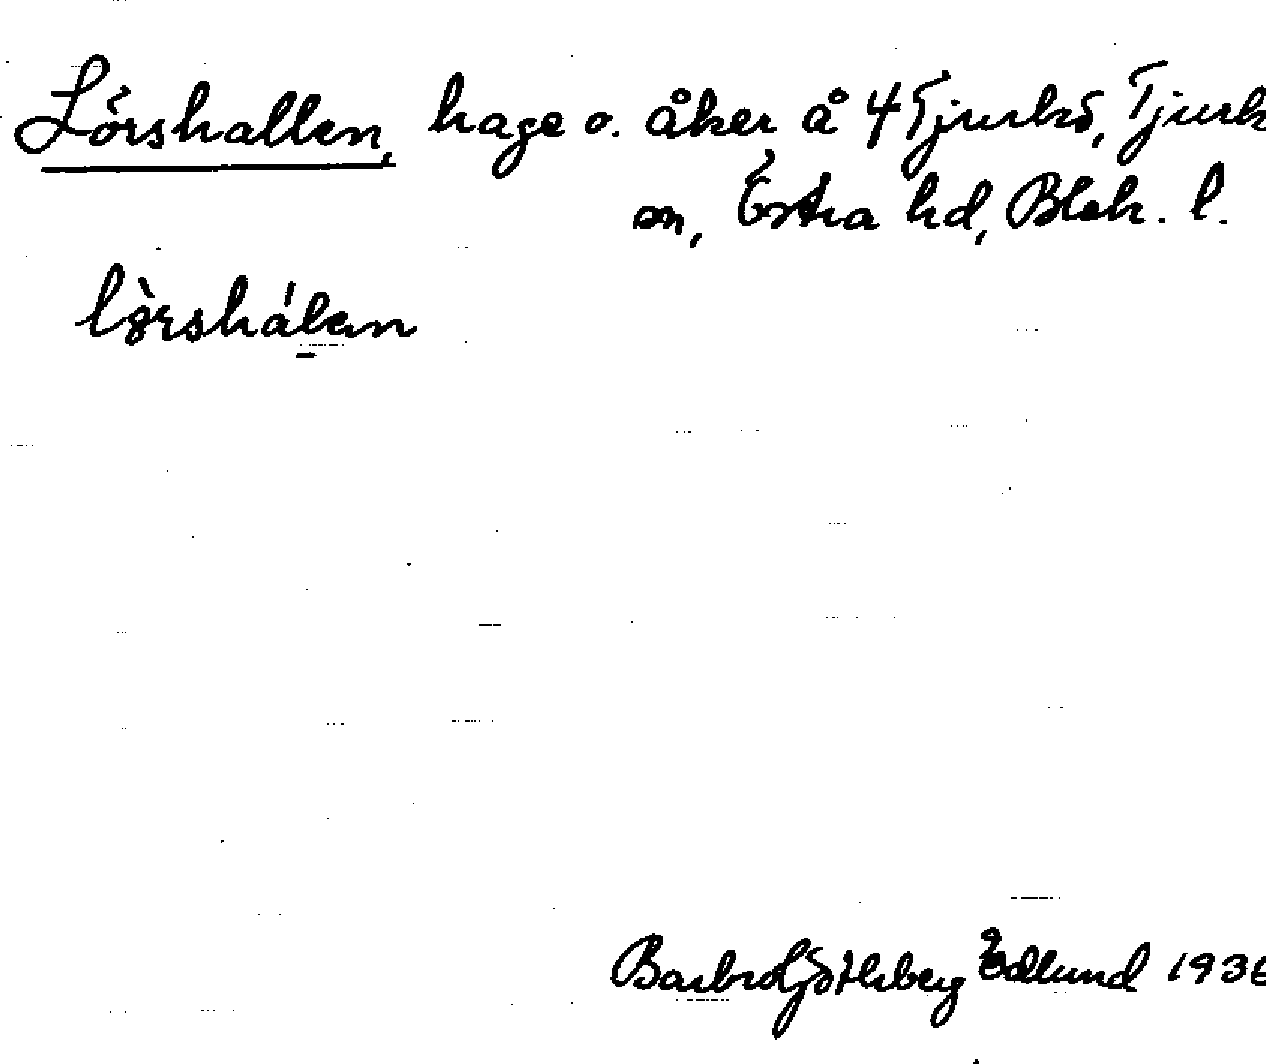 Lörshallen, hage o. åker å 4 Tjurkö, Tjurk
sn, Östra hd, Blek. l.
lörshálen
Barbro Götherberg Edlund 1936